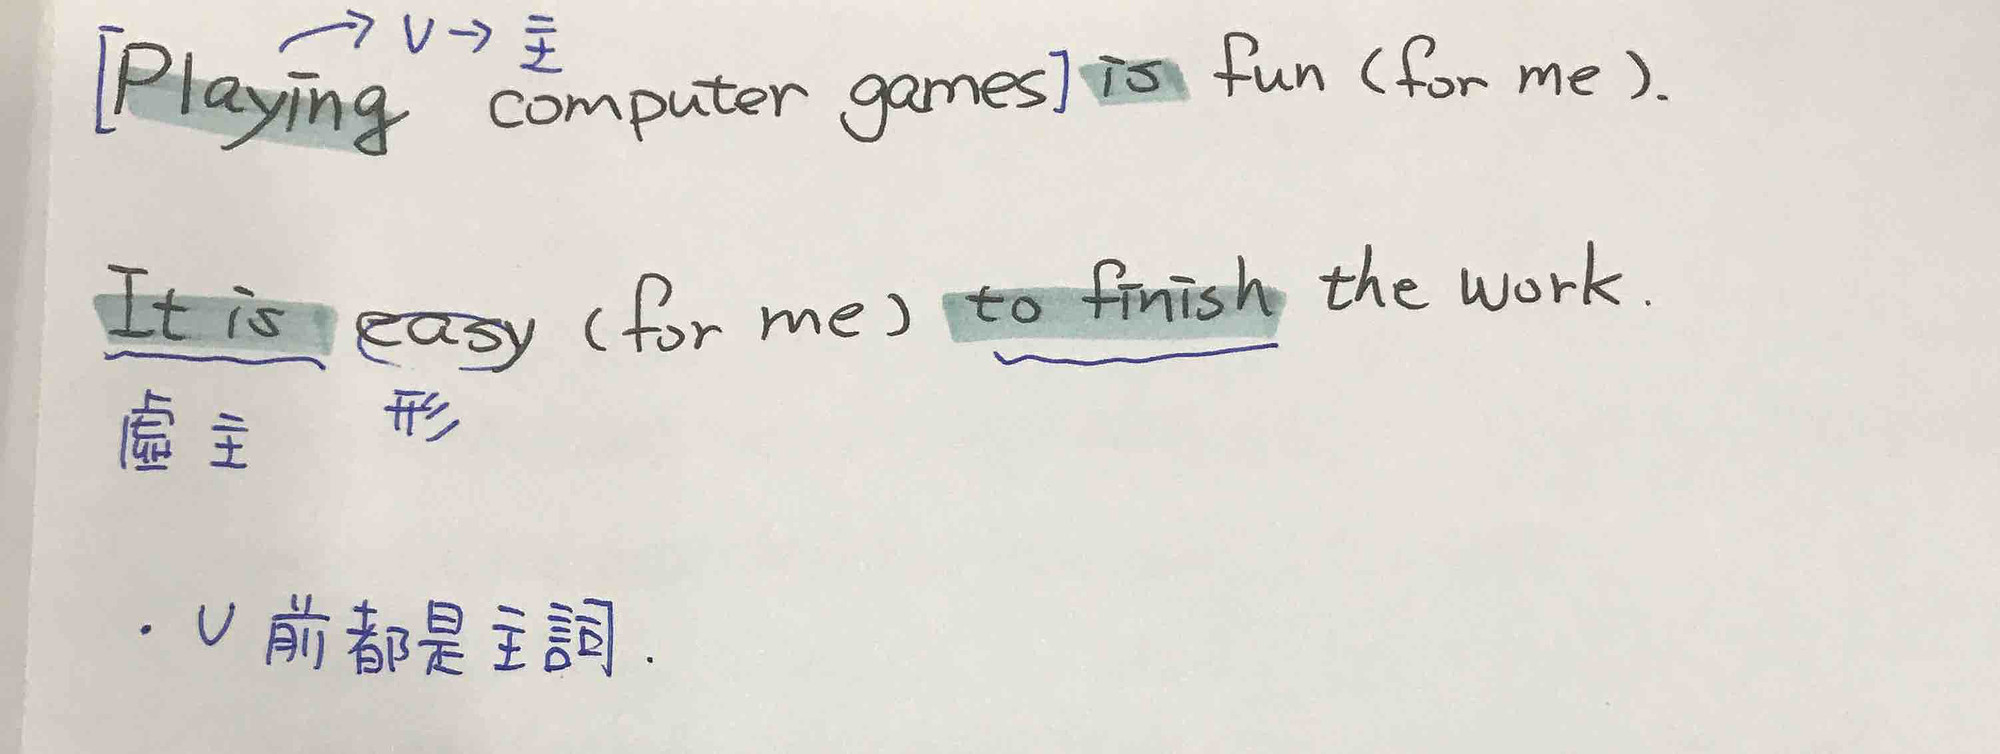 → V → 主
[Playing computer games] is fun (for me).
It is easy (for me) to finish the work.
虛主 形
· V 前都是主詞.